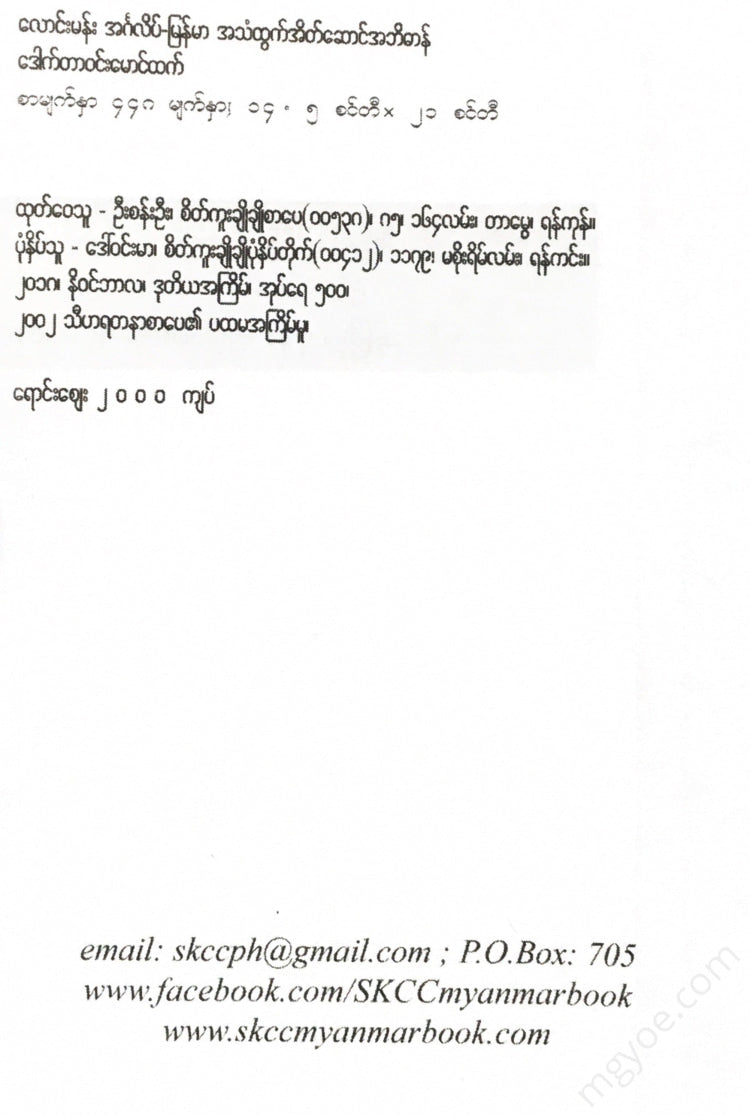 လောင်းမန်း အင်္ဂလိပ်-မြန်မာ အသံထွက်အိတ်ဆောင်အဘိဓာန်
ဒေါက်တာဝင်းမောင်ထက်
စာမျက်နှာ ၄၄၈ မျက်နှာ; ၁၄ . ၅ စင်တီ× ၂၁ စင်တီ
ထုတ်ဝေသူ - ဦးစန်းဦး၊ စိတ်ကူးချိုချိုစာပေ(၀၀၅၃၈)၊ ၈၅၊ ၁၆၄လမ်း၊ တာမွေ၊ ရန်ကုန်။
ပုံနှိပ်သူ - ဒေါ်ဝင်းမာ၊ စိတ်ကူးချိုချိုပုံနှိပ်တိုက်(၀၀၄၁၂)၊ ၁၁၇၉၊ မစိုးရိမ်လမ်း၊ ရန်ကင်း။
၂၀၁၈၊ နိုဝင်ဘာလ၊ ဒုတိယအကြိမ်၊ အုပ်ရေ ၅၀၀၊
၂၀၀၂ သီဟရတနာစာပေ၏ ပထမအကြိမ်မူ၊
ရောင်းဈေး ၂ ၀ ၀ ၀ ကျပ်
email: skccph@gmail.com ; P.O.Box: 705
www.facebook.com/SKCCmyanmarbook
www.skccmyanmarbook.com
mgyoe.com